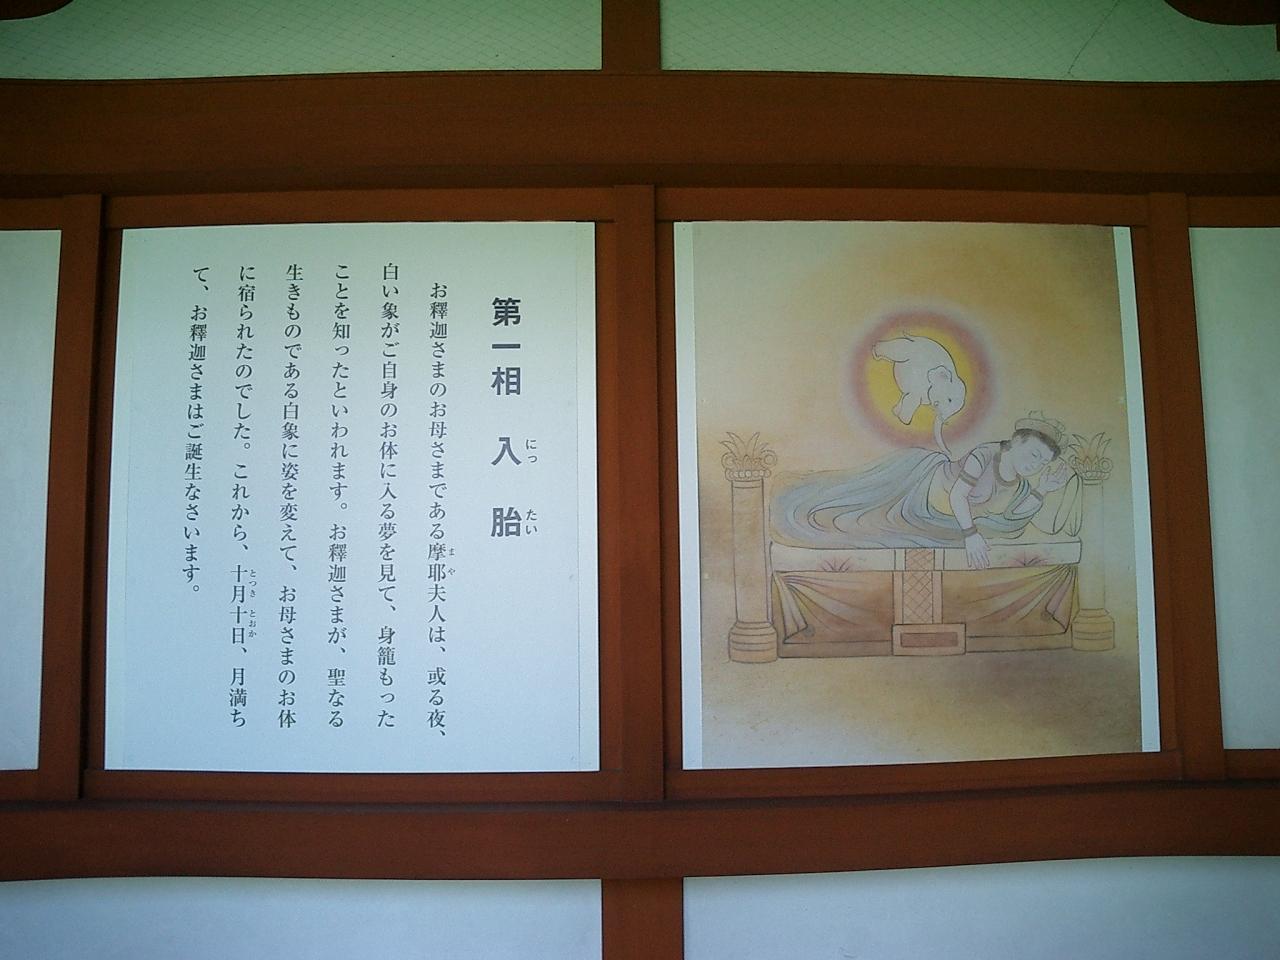 第一相 入胎
にったい
お釋迦さまのお母さまである摩耶夫人は、或る夜、
まや
白い象がご自身のお体に入る夢を見て、身籠もった
ことを知ったといわれます。お釋迦さまが、聖なる
生きものである白象に姿を変えて、お母さまのお体
に宿られたのでした。これから、十月十日、月満ち
とつきとおか
て、お釋迦さまはご誕生なさいます。